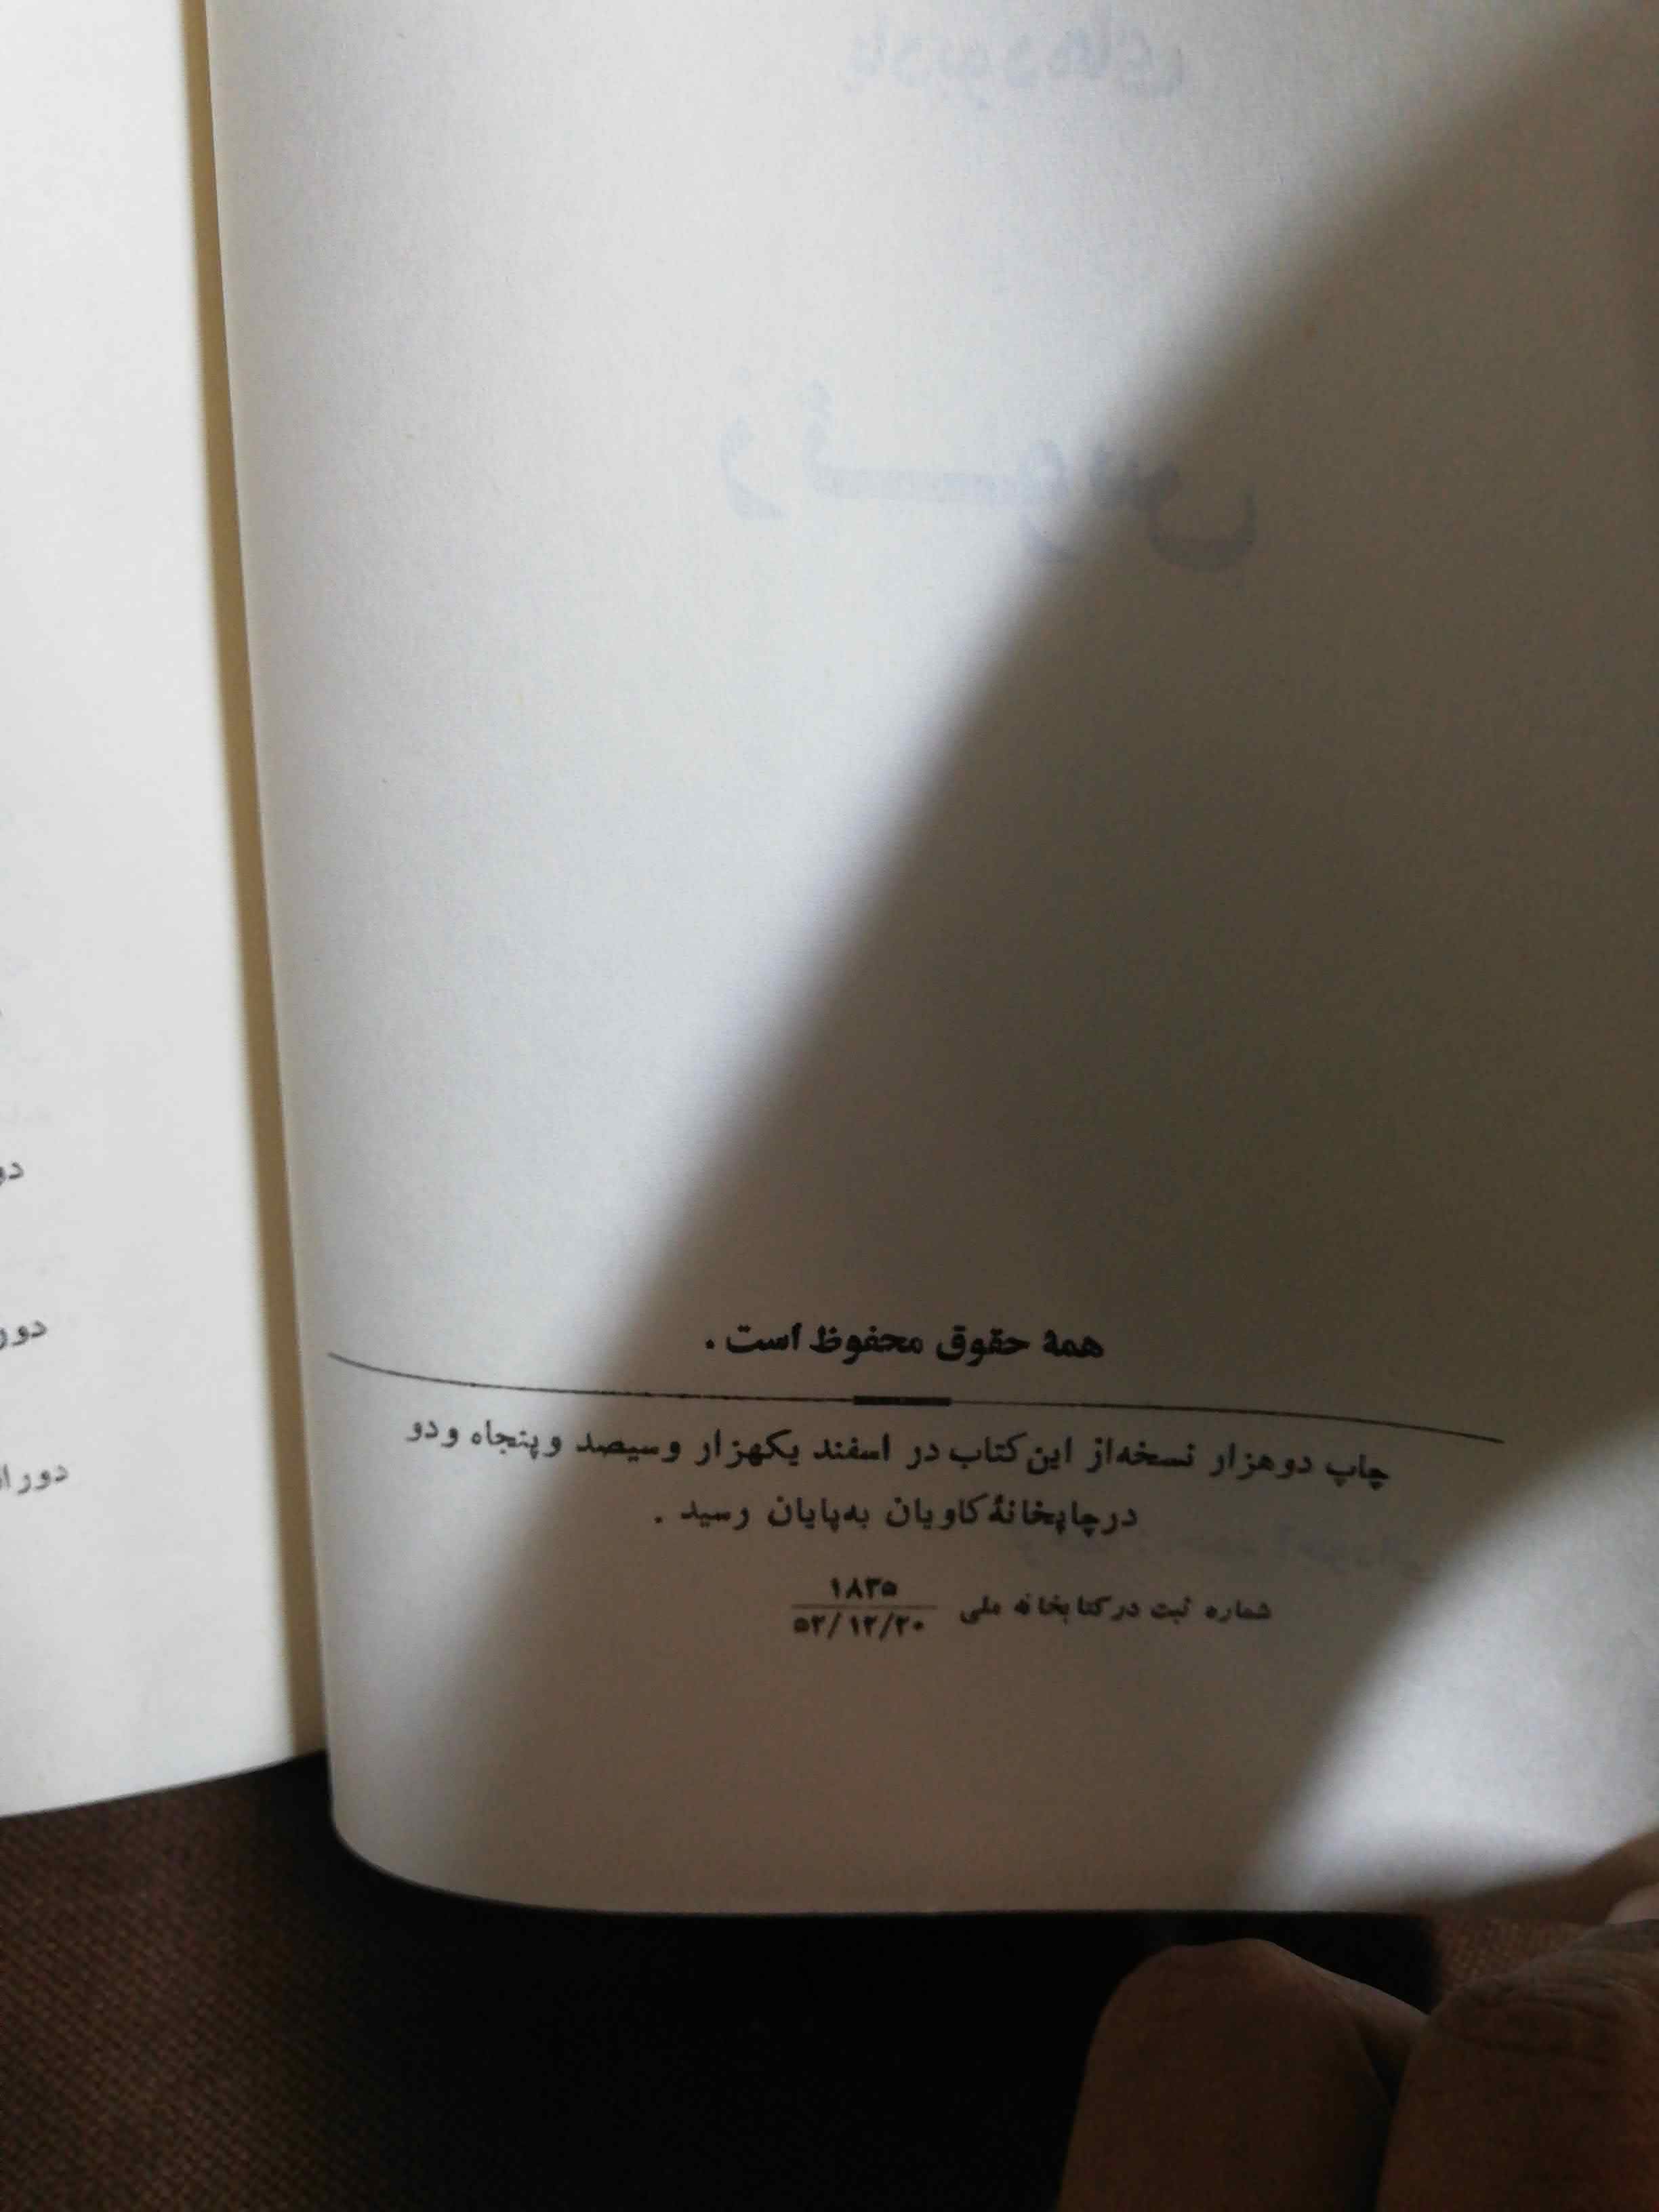 همهٔ حقوق محفوظ است .
چاپ دوهزار نسخه از این کتاب در اسفند یکهزار و سیصد و پنجاه و دو
در چاپخانهٔ کاویان به پایان رسید .
شماره ثبت در کتابخانه ملی ۱۸۳۵
۵۲/۱۲/۲۰
دو
دور
دورا